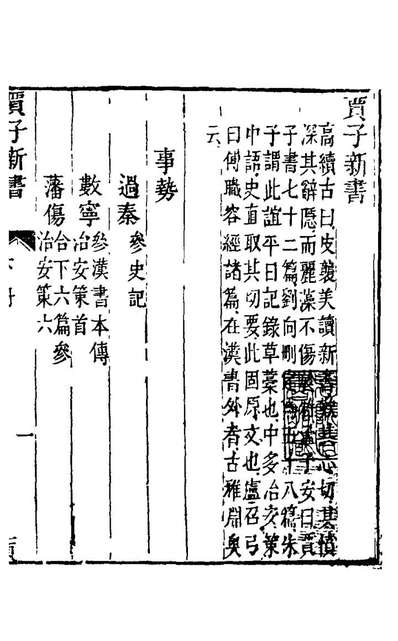 賈子新書
高續古曰皮襲美讀新書
深其辭隱而麗藻不傷
子書七十二篇劉向刪定
子謂此誼平日記錄草藁也中多治安策
中語史直取其切要此固原文也盧召弓
曰傅職容經諸篇在漢書外者古雅淵奥
云
事勢
過秦參史記
數寧參漢書本傳
治安策首
藩傷合下六篇參
治安策六
賈子新書
一